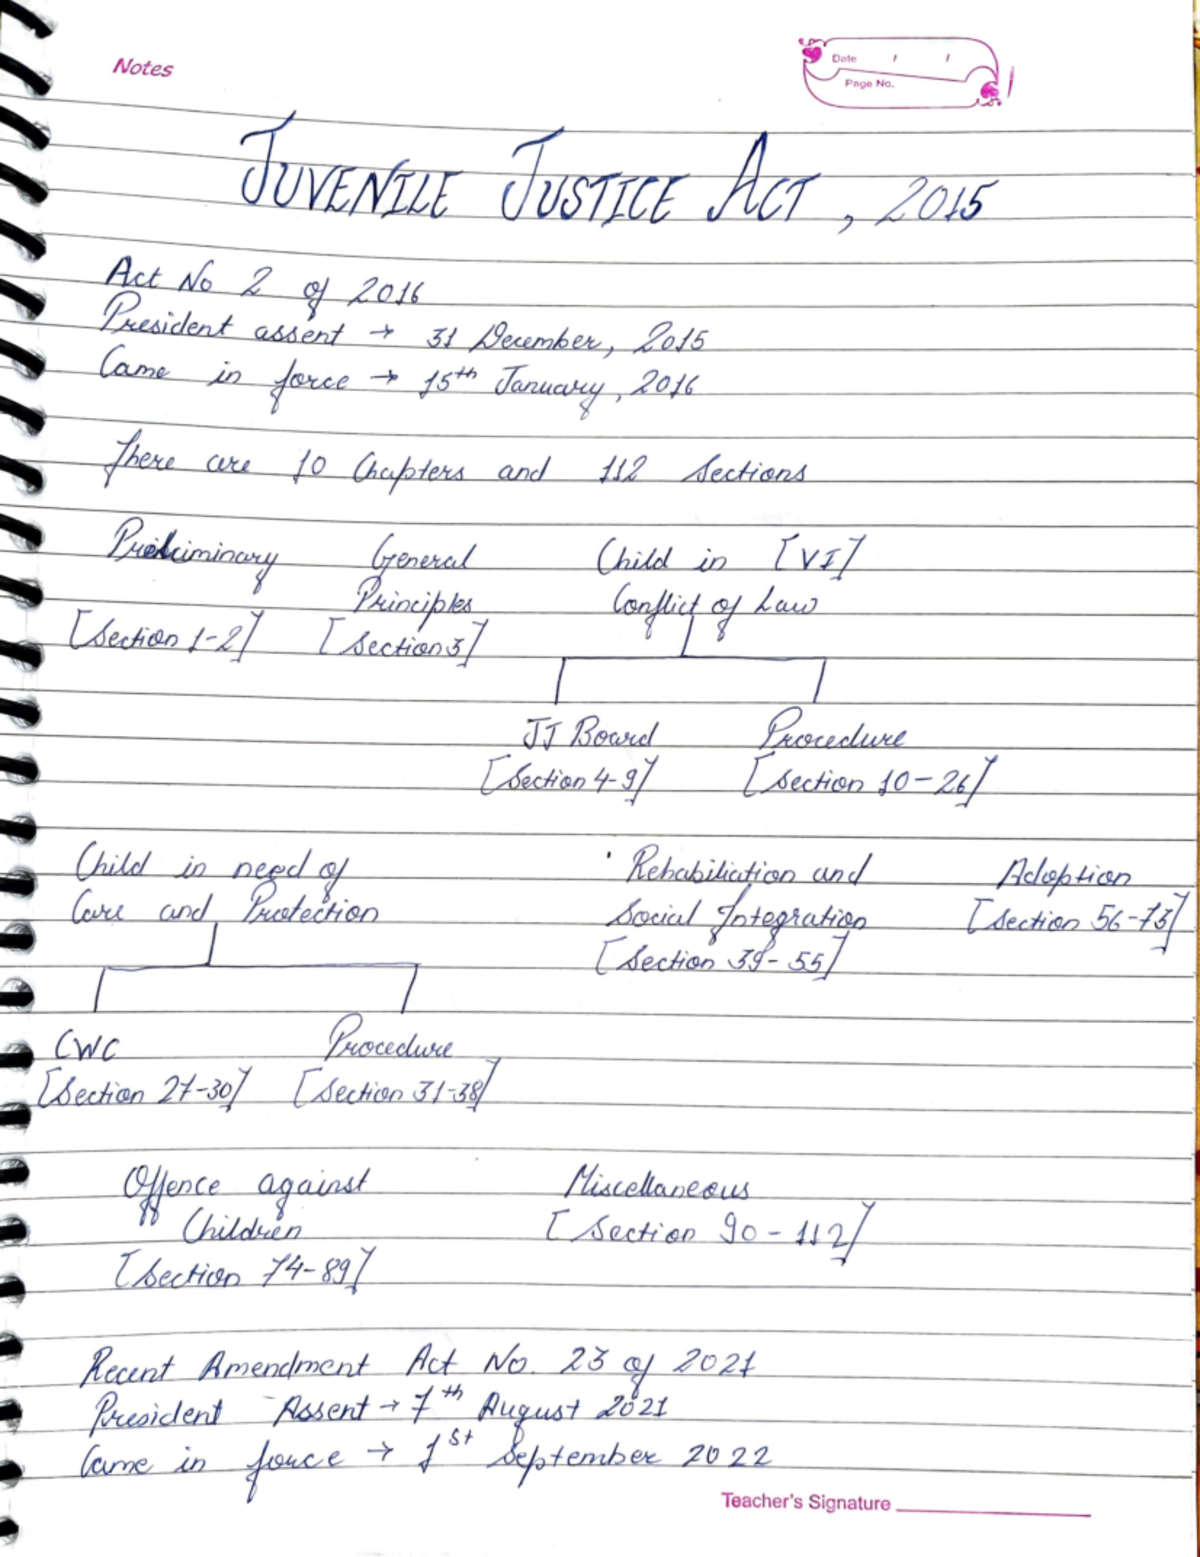 Notes
Date / /
Page No.
JUVENILE JUSTICE ACT, 2015
Act No 2 of 2016
President assent → 31 December, 2015
Came in force → 15th January, 2016
There are 10 Chapters and 112 Sections
Preliminary General Child in [VI]
Principles Conflict of Law
[Section 1-2] [Section 3]
JJ Board Procedure
[Section 4-9] [Section 10-26]
Child in need of Rehabiliation and Adoption
Care and Protection Social Integration [Section 56-73]
[Section 39-55]
CWC Procedure
[Section 27-30] [Section 31-38]
Offence against Miscellaneous
Children [Section 90-112]
[Section 74-89]
Recent Amendment Act No. 23 of 2021
President Assent → 7th August 2021
Came in force → 1st September 2022
Teacher's Signature